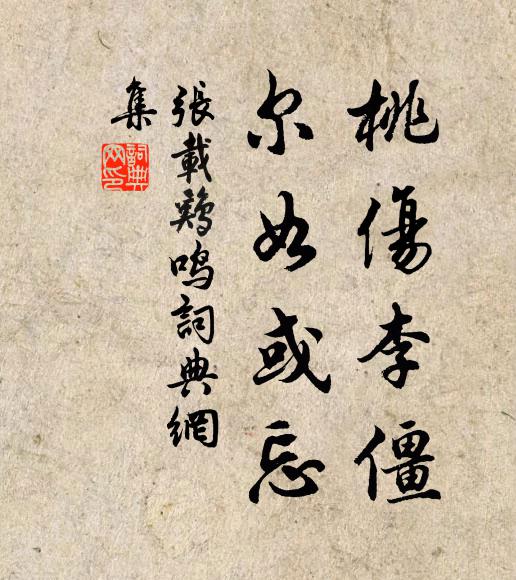 桃傷李僵
尔如或忘
張載鷄鳴詞典網
集
詞典網印